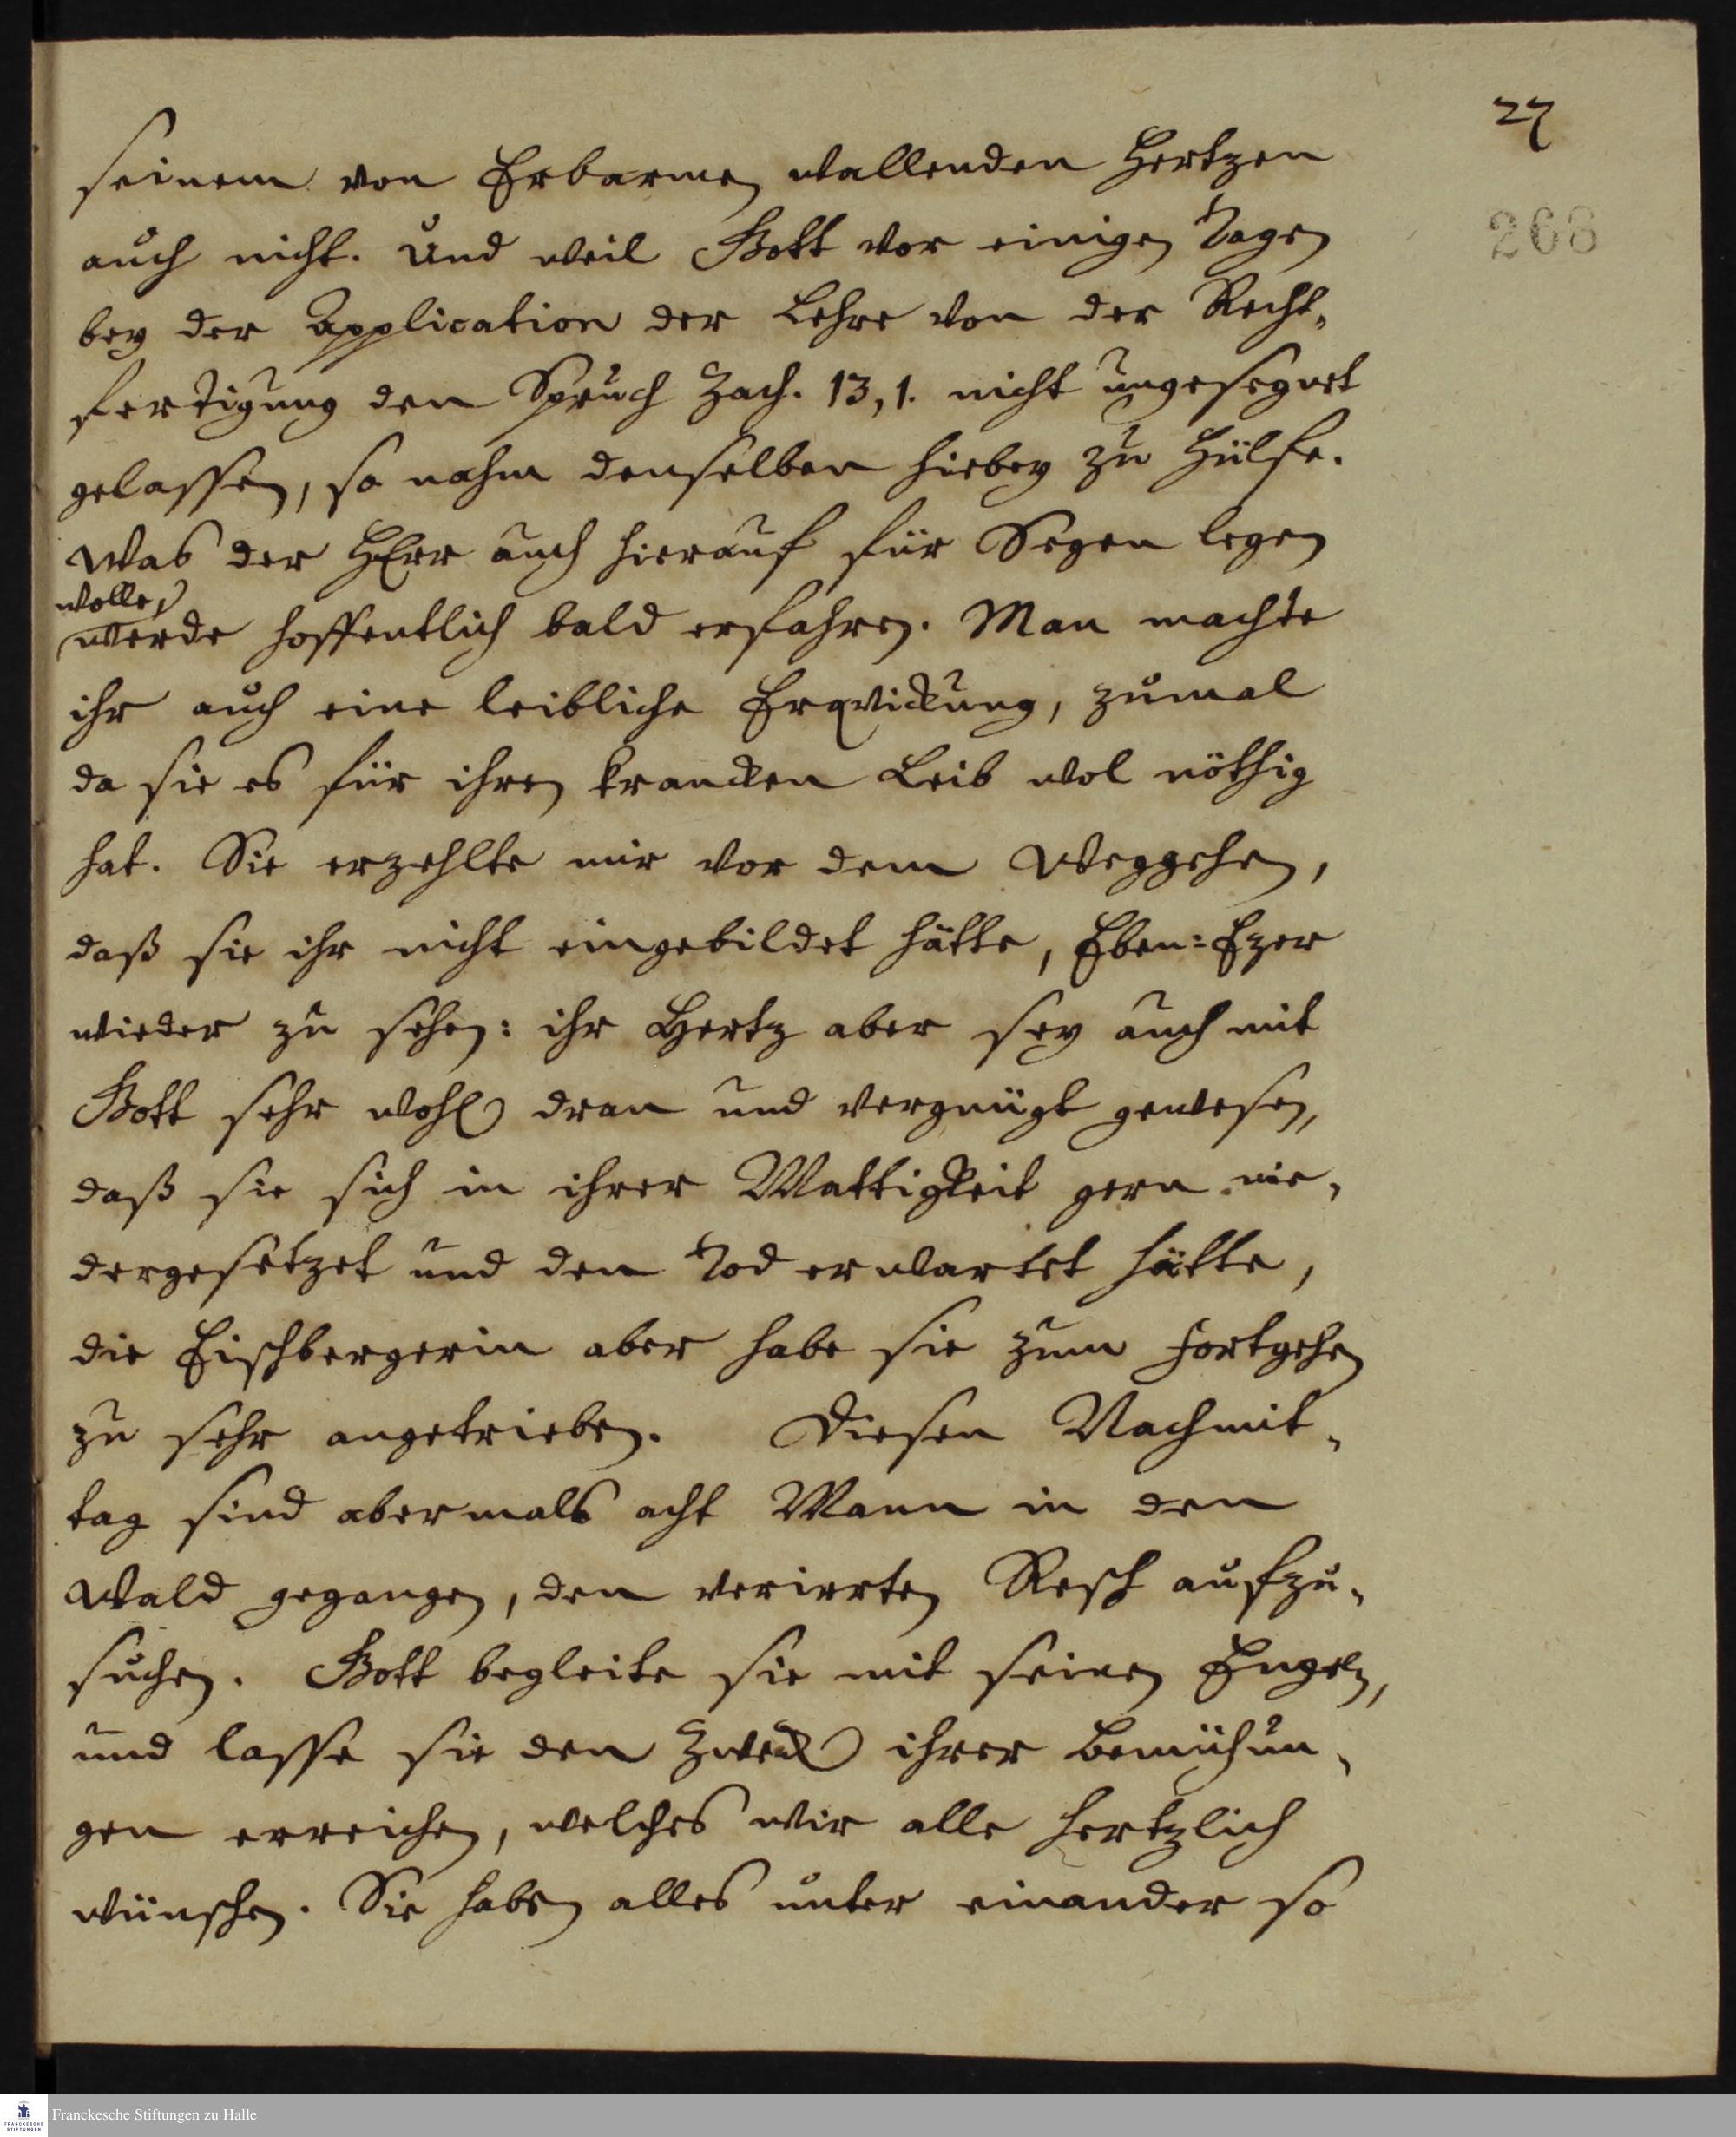 27
268
seinem von Erbarmen wallenden Hertzen
auch nicht. Und weil Gott vor einigen Tagen
bey der Application der Lehre von der Recht-
fertigung den Spruch Zach. 13,1. nicht ungesegnet
gelassen, so nahm denselben hiebey zu Hülfe.
Was der HErr auch hierauf für Segen legen
wolle,
werde hoffentlich bald erfahren. Man machte
ihr auch eine leibliche Erqvickung, zumal
da sie es für ihren krancken Leib wol nöthig
hat. Sie erzehlte mir vor dem Weggehen,
daß sie ihr nicht eingebildet hätte, Eben=Ezer
wieder zu sehen: ihr Hertz aber sey auch mit
Gott sehr wohl dran und vergnügt gewesen,
daß sie sich in ihrer Mattigkeit gern nie-
dergesetzet und den Tod erwartet hätte,
die Eischbergerin aber habe sie zum Fortgehen
zu sehr angetrieben. Diesen Nachmit-
tag sind abermals acht Mann in den
Wald gegangen, den verirrten Resch aufzu-
suchen. Gott begleite sie mit seinen Engeln,
und lasse sie den Zweck ihrer Bemühun-
gen erreichen, welches wir alle hertzlich
wünschen. Sie haben alles unter einander so
FRANCKESCHE
STIFTUNGEN
Franckesche Stiftungen zu Halle